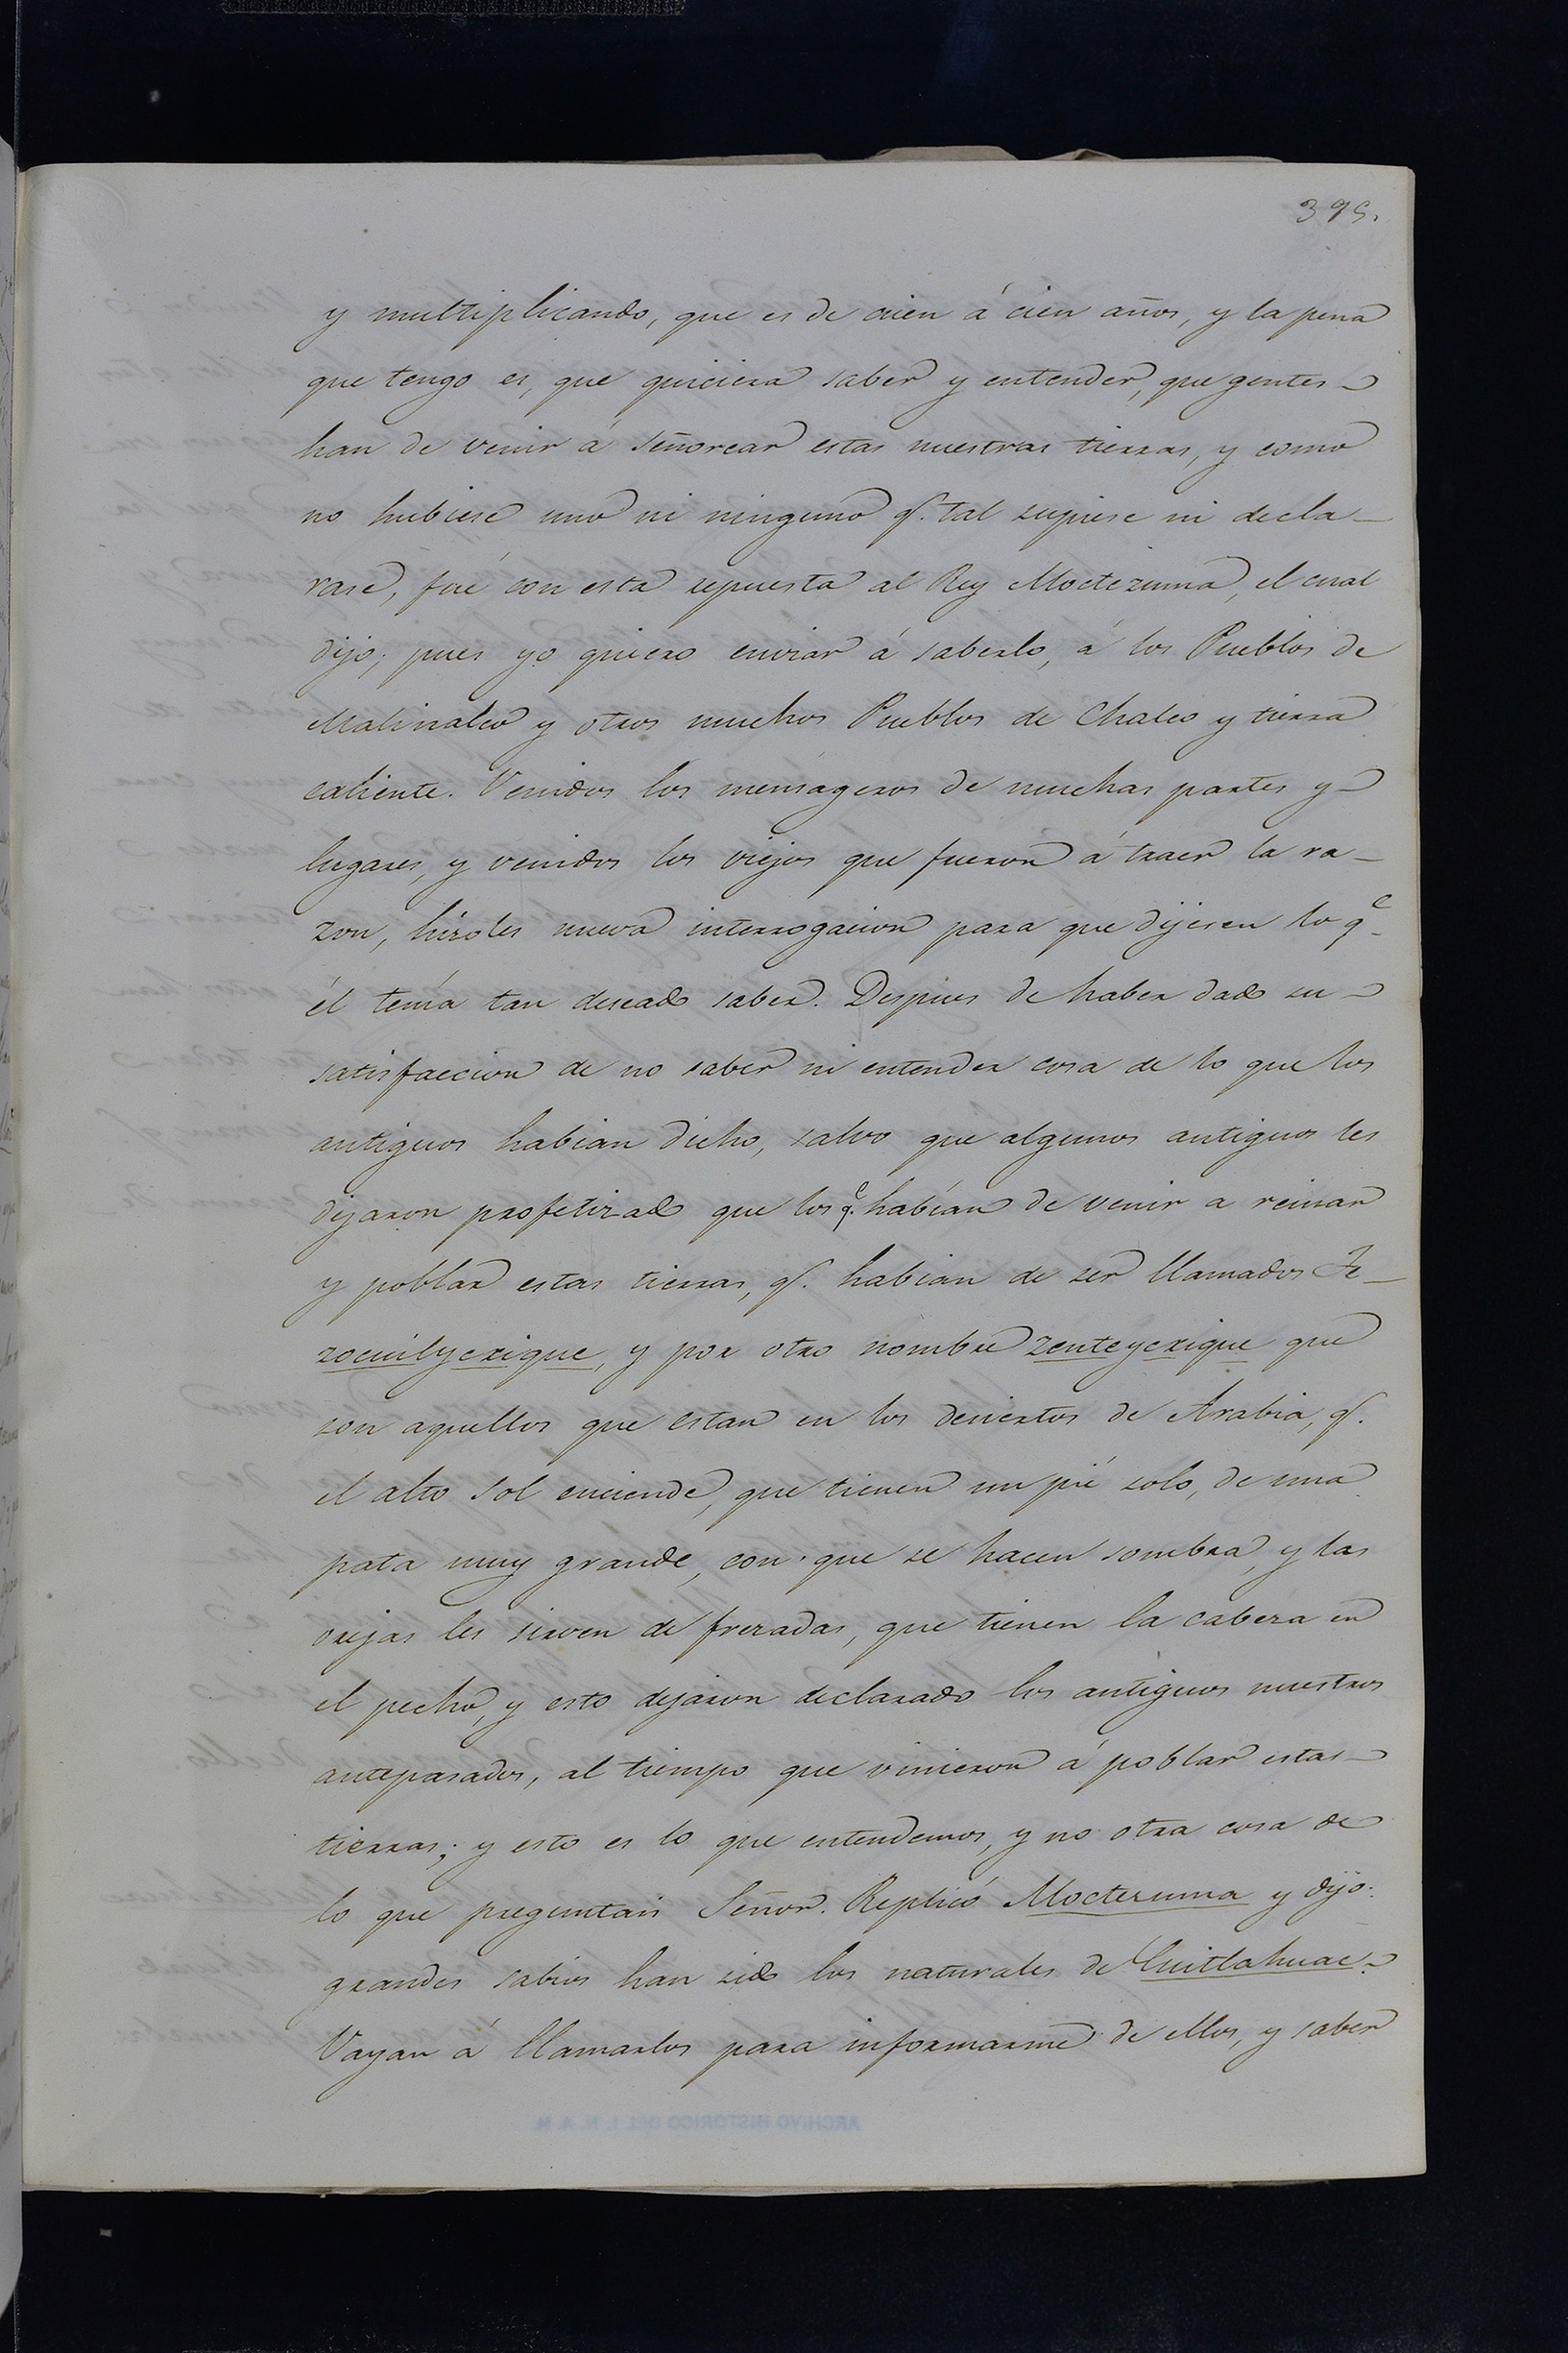 395.
y multiplicando, que es de cien á cien años, y la pena
que tengo es, que quiciera saber y entender, que gentes
han de venir á Señorear estas nuestras tierras, y como
no hubiese uno ni ninguno q.e tal supiese ni decla-
rase, fué con esta repuesta al Rey Moctezuma, el cual
dijo; pues yo quiero enviar á saberlo, á los Pueblos de
Malinalco y otros muchos Pueblos de Chalco y tierra
caliente. Venidos los mensageros de muchas partes y
lugares, y venidos los viejos que fueron á traer la ra-
zon, hízoles nueva interrogacion para que dijesen lo q.e
él tenía tan deseado saber. Despues de haber dado su
satisfaccion de no saber ni entender cosa de lo que los
antiguos habian dicho, salvo que algunos antiguos les
dijaron profetizado que los q.e habían de venir a reinar
y poblar estas tierras, q.e habian de ser llamados Te-
zocuilyexique, y por otro nombre zenteyexique que
son aquellos que estan en los deciertos de Arabia, q.e
el alto Sol enciende, que tienen un pié solo, de una
pata muy grande, con que se hacen sombra, y las
orejas les sirven de frezadas, que tienen la cabeza en
el pecho, y esto dejaron declarado los antiguos nuestros
antepasados, al tiempo que vinieron á poblar estas
tierras; y esto es lo que entendemos, y no otra cosa de
lo que preguntais Señor. Replicó Moctezuma y dijo:
grandes sabios han sido los naturales de Cuitlahuac.
Vayan á llamarlos para informarme de ellos, y saber
ARCHIVO HISTORICO DEL I. N. A. H.